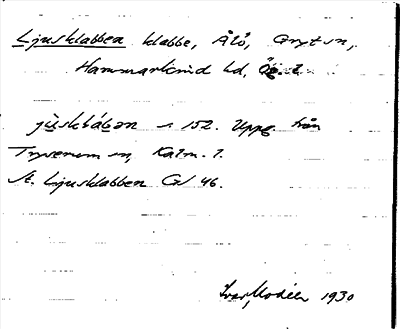 Ljusklabben klabbe, Ålö, Gryt sn,
Hammarkind hd, Ög. l.
jùsklábən ~ 152. Uppg. från
Tryserum sn, Kalm. l.
St. Ljusklabben GS 46.
Ivar Modéer 1930